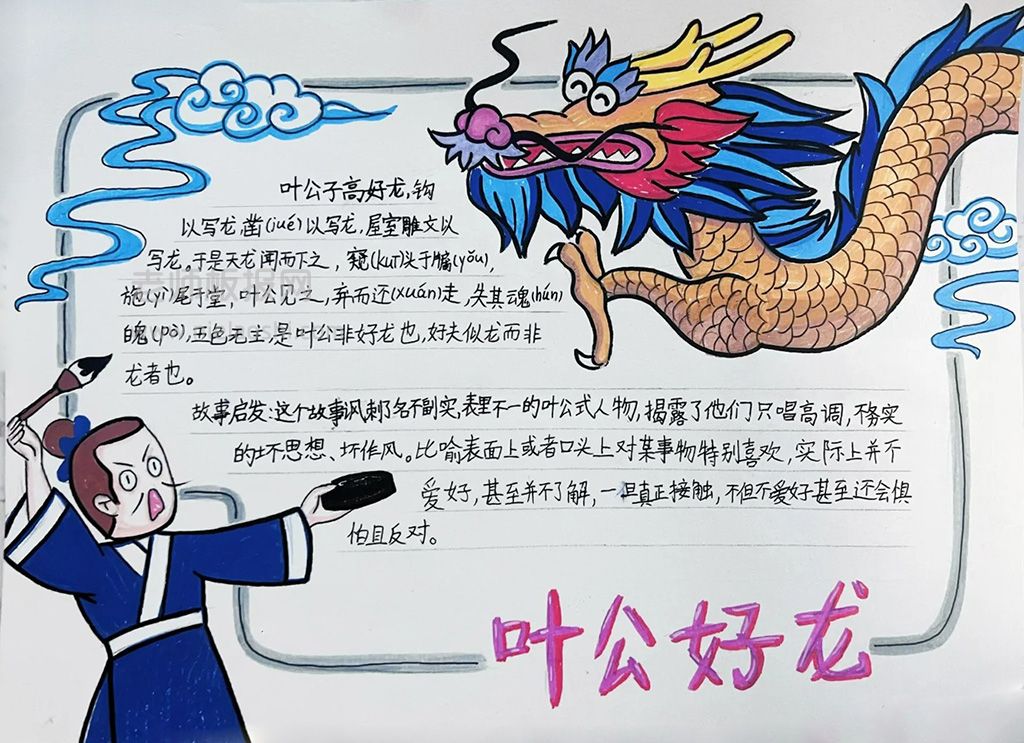 叶公子高好龙,钩
以写龙,凿(jué)以写龙,屋室雕文以
写龙。于是天龙闻而下之,窥(kuī)头于牖(yǒu),
施(yì)尾于堂,叶公见之,弃而还(xuán)走,失其魂(hún)
魄(pò),五色无主,是叶公非好龙也,好夫似龙而非
龙者也。
故事启发:这个故事讽刺了名不副实,表里不一的叶公式人物,揭露了他们只唱高调,不务实
的坏思想、坏作风。比喻表面上或者口头上对某事物特别喜欢,实际上并不
爱好,甚至并不了解,一旦真正接触,不但不爱好甚至还会惧
怕且反对。
叶公好龙
老师板报网